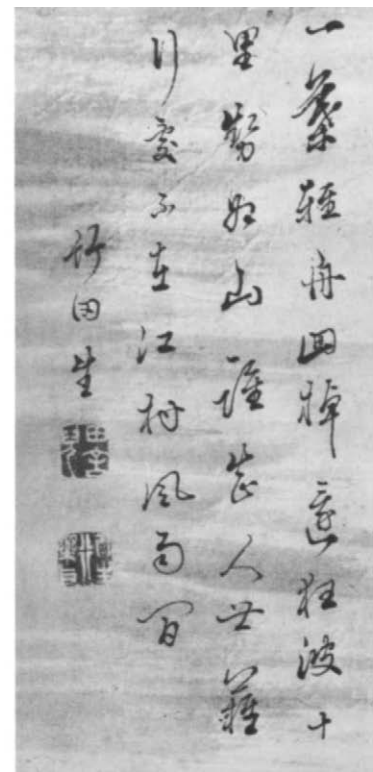 一葉輕舟回棹還狂波十
里勢如山誰知人世難
行處不在江村風雨間
竹田生